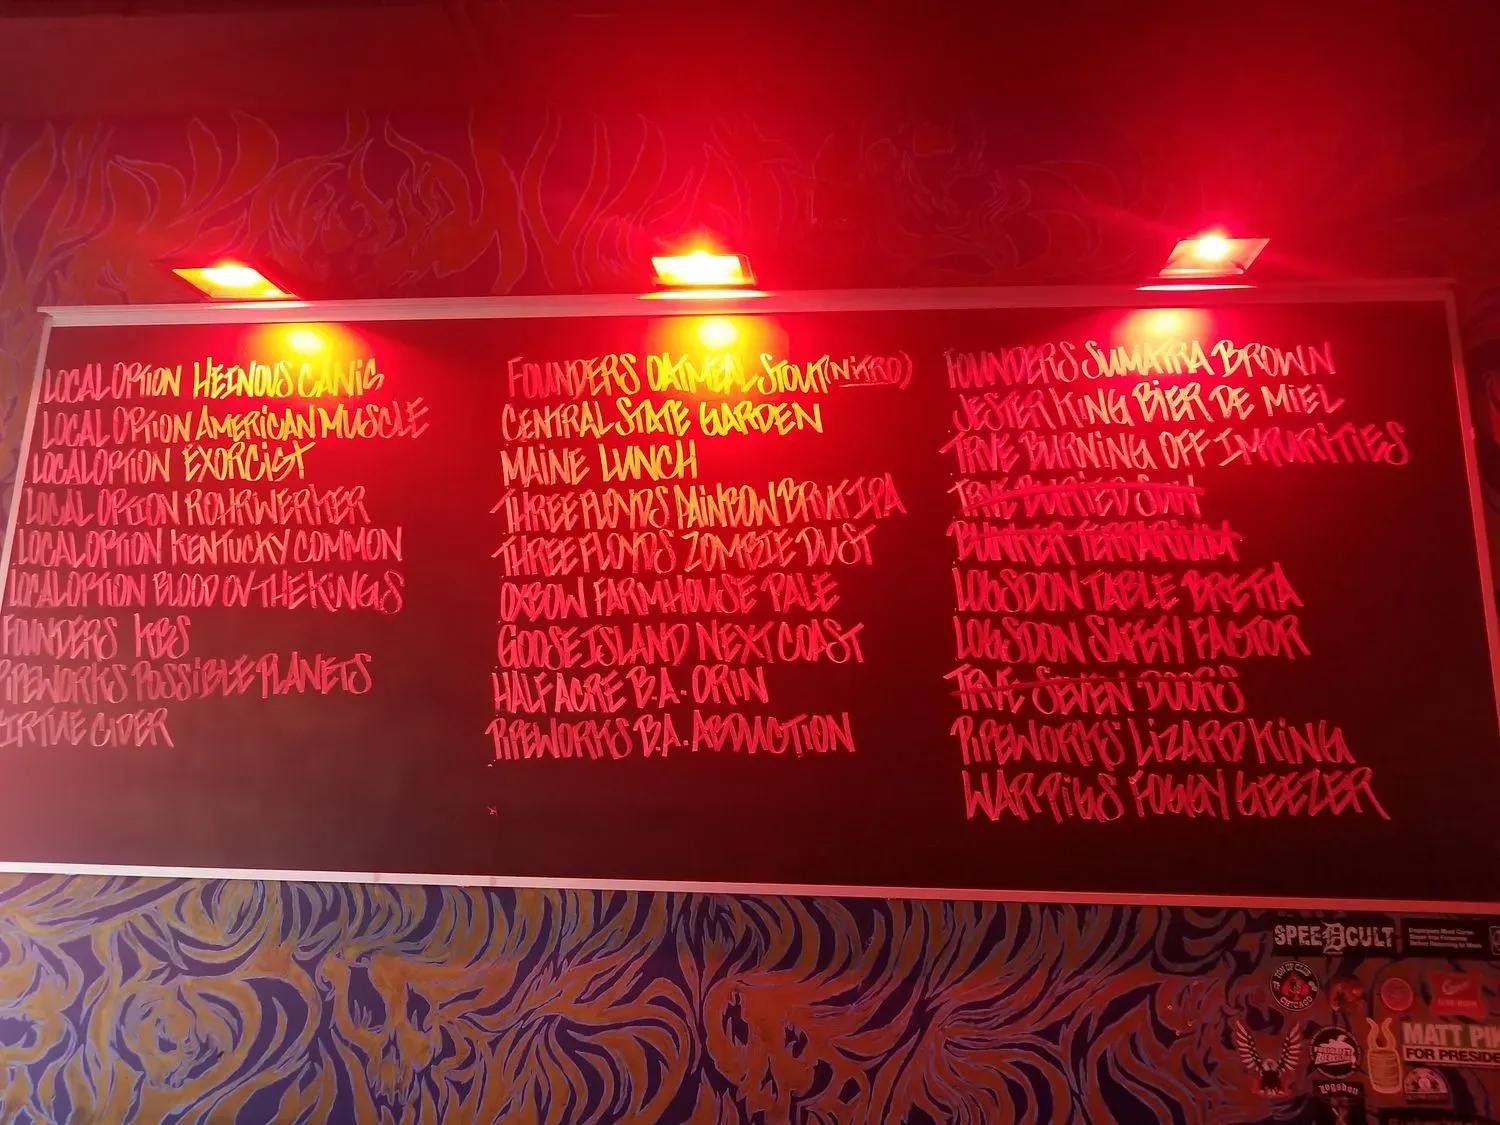 LOCAL OPTION HEINOUS CANIS
LOCAL OPTION AMERICAN MUSCLE
LOCAL OPTION EXORCIST
LOCAL OPTION ROHRWERKER
LOCAL OPTION KENTUCKY COMMON
LOCAL OPTION BLOOD OV THE KINGS
FOUNDERS KBS
PIPEWORKS POSSIBLE PLANETS
VIRTUE CIDER
FOUNDERS OATMEAL STOUT (NITRO)
CENTRAL STATE GARDEN
MAINE LUNCH
THREE FLOYDS RAINBOW BRUT IPA
THREE FLOYDS ZOMBIE DUST
OXBOW FARMHOUSE PALE
GOOSE ISLAND NEXT COAST
HALF ACRE B.A. ORIN
PIPEWORKS B.A. ABDUCTION
FOUNDERS SUMATRA BROWN
JESTER KING BIER DE MIEL
TRVE BURNING OFF IMPURITIES
TRVE BURIED SUN
BUNKER TERRARIUM
LOGSDON TABLE BRETTA
LOGSDON SAFETY FACTOR
TRVE SEVEN DOORS
PIPEWORKS LIZARD KING
WARPIGS FOGGY GEEZER
SPEEDCULT
CHICAGO
MATT PIK
FOR PRESIDE
Logsdon